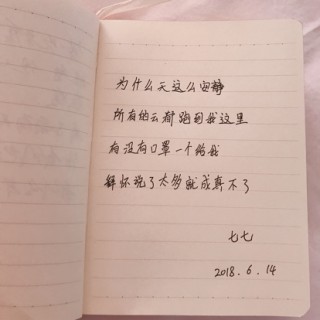 为什么天这么安静
所有的云都跑到我这里
有没有口罩一个给我
释怀说了太多就成真不了
七七
2018.6.14